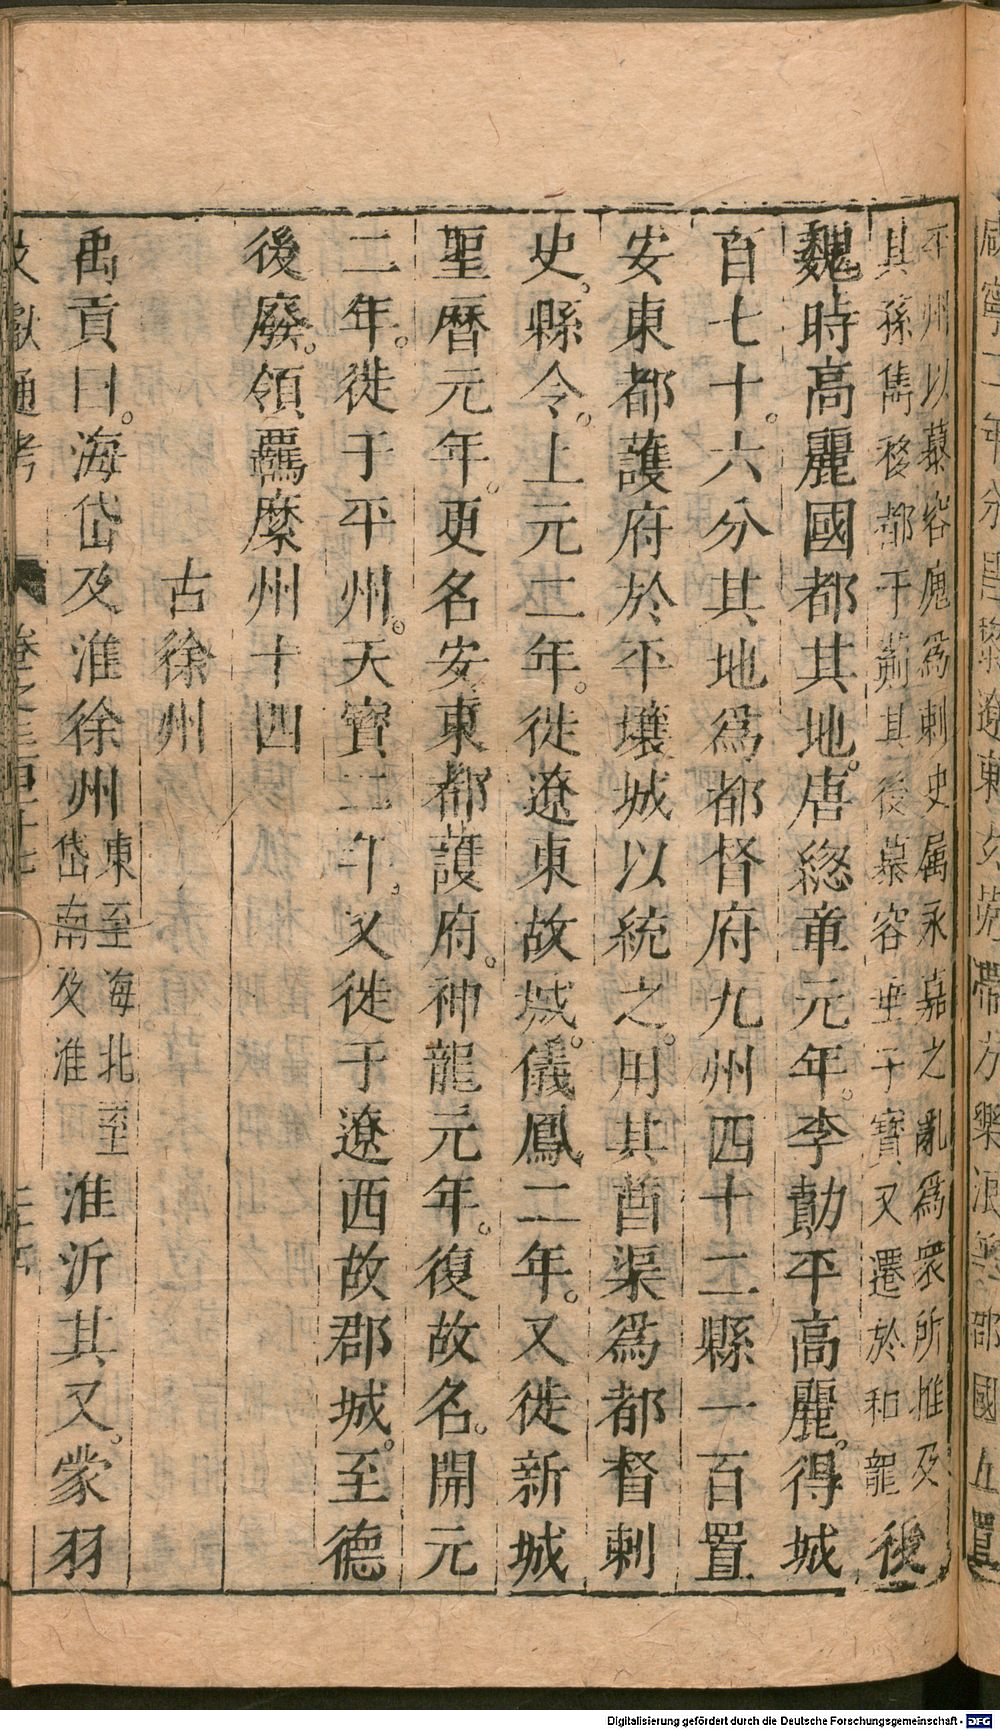 平州以慕容廆爲刺史属永嘉之亂爲衆所推及
其孫雋移都于薊其後慕容垂子寶又遷於和龍
後
魏時高麗國都其地。唐總章元年。李勣平高麗。得城
百七十。六分其地爲都督府九州四十二縣一百置
安東都護府於平壤城以統之。用其酋渠爲都督刺
史。縣令。上元二年。徙遼東故城。儀鳳二年。又徙新城
聖曆元年。更名安東都護府。神龍元年。復故名。開元
二年。徙于平州。天寶二年。又徙于遼西故郡城。至德
後廢。領羈縻州十四
古徐州
禹貢曰。海岱及淮徐州
東至海北至
岱南及淮
淮沂其又。蒙羽
文獻通考
卷之三百十七
Digitalisierung gefördert durch die Deutsche Forschungsgemeinschaft - DFG